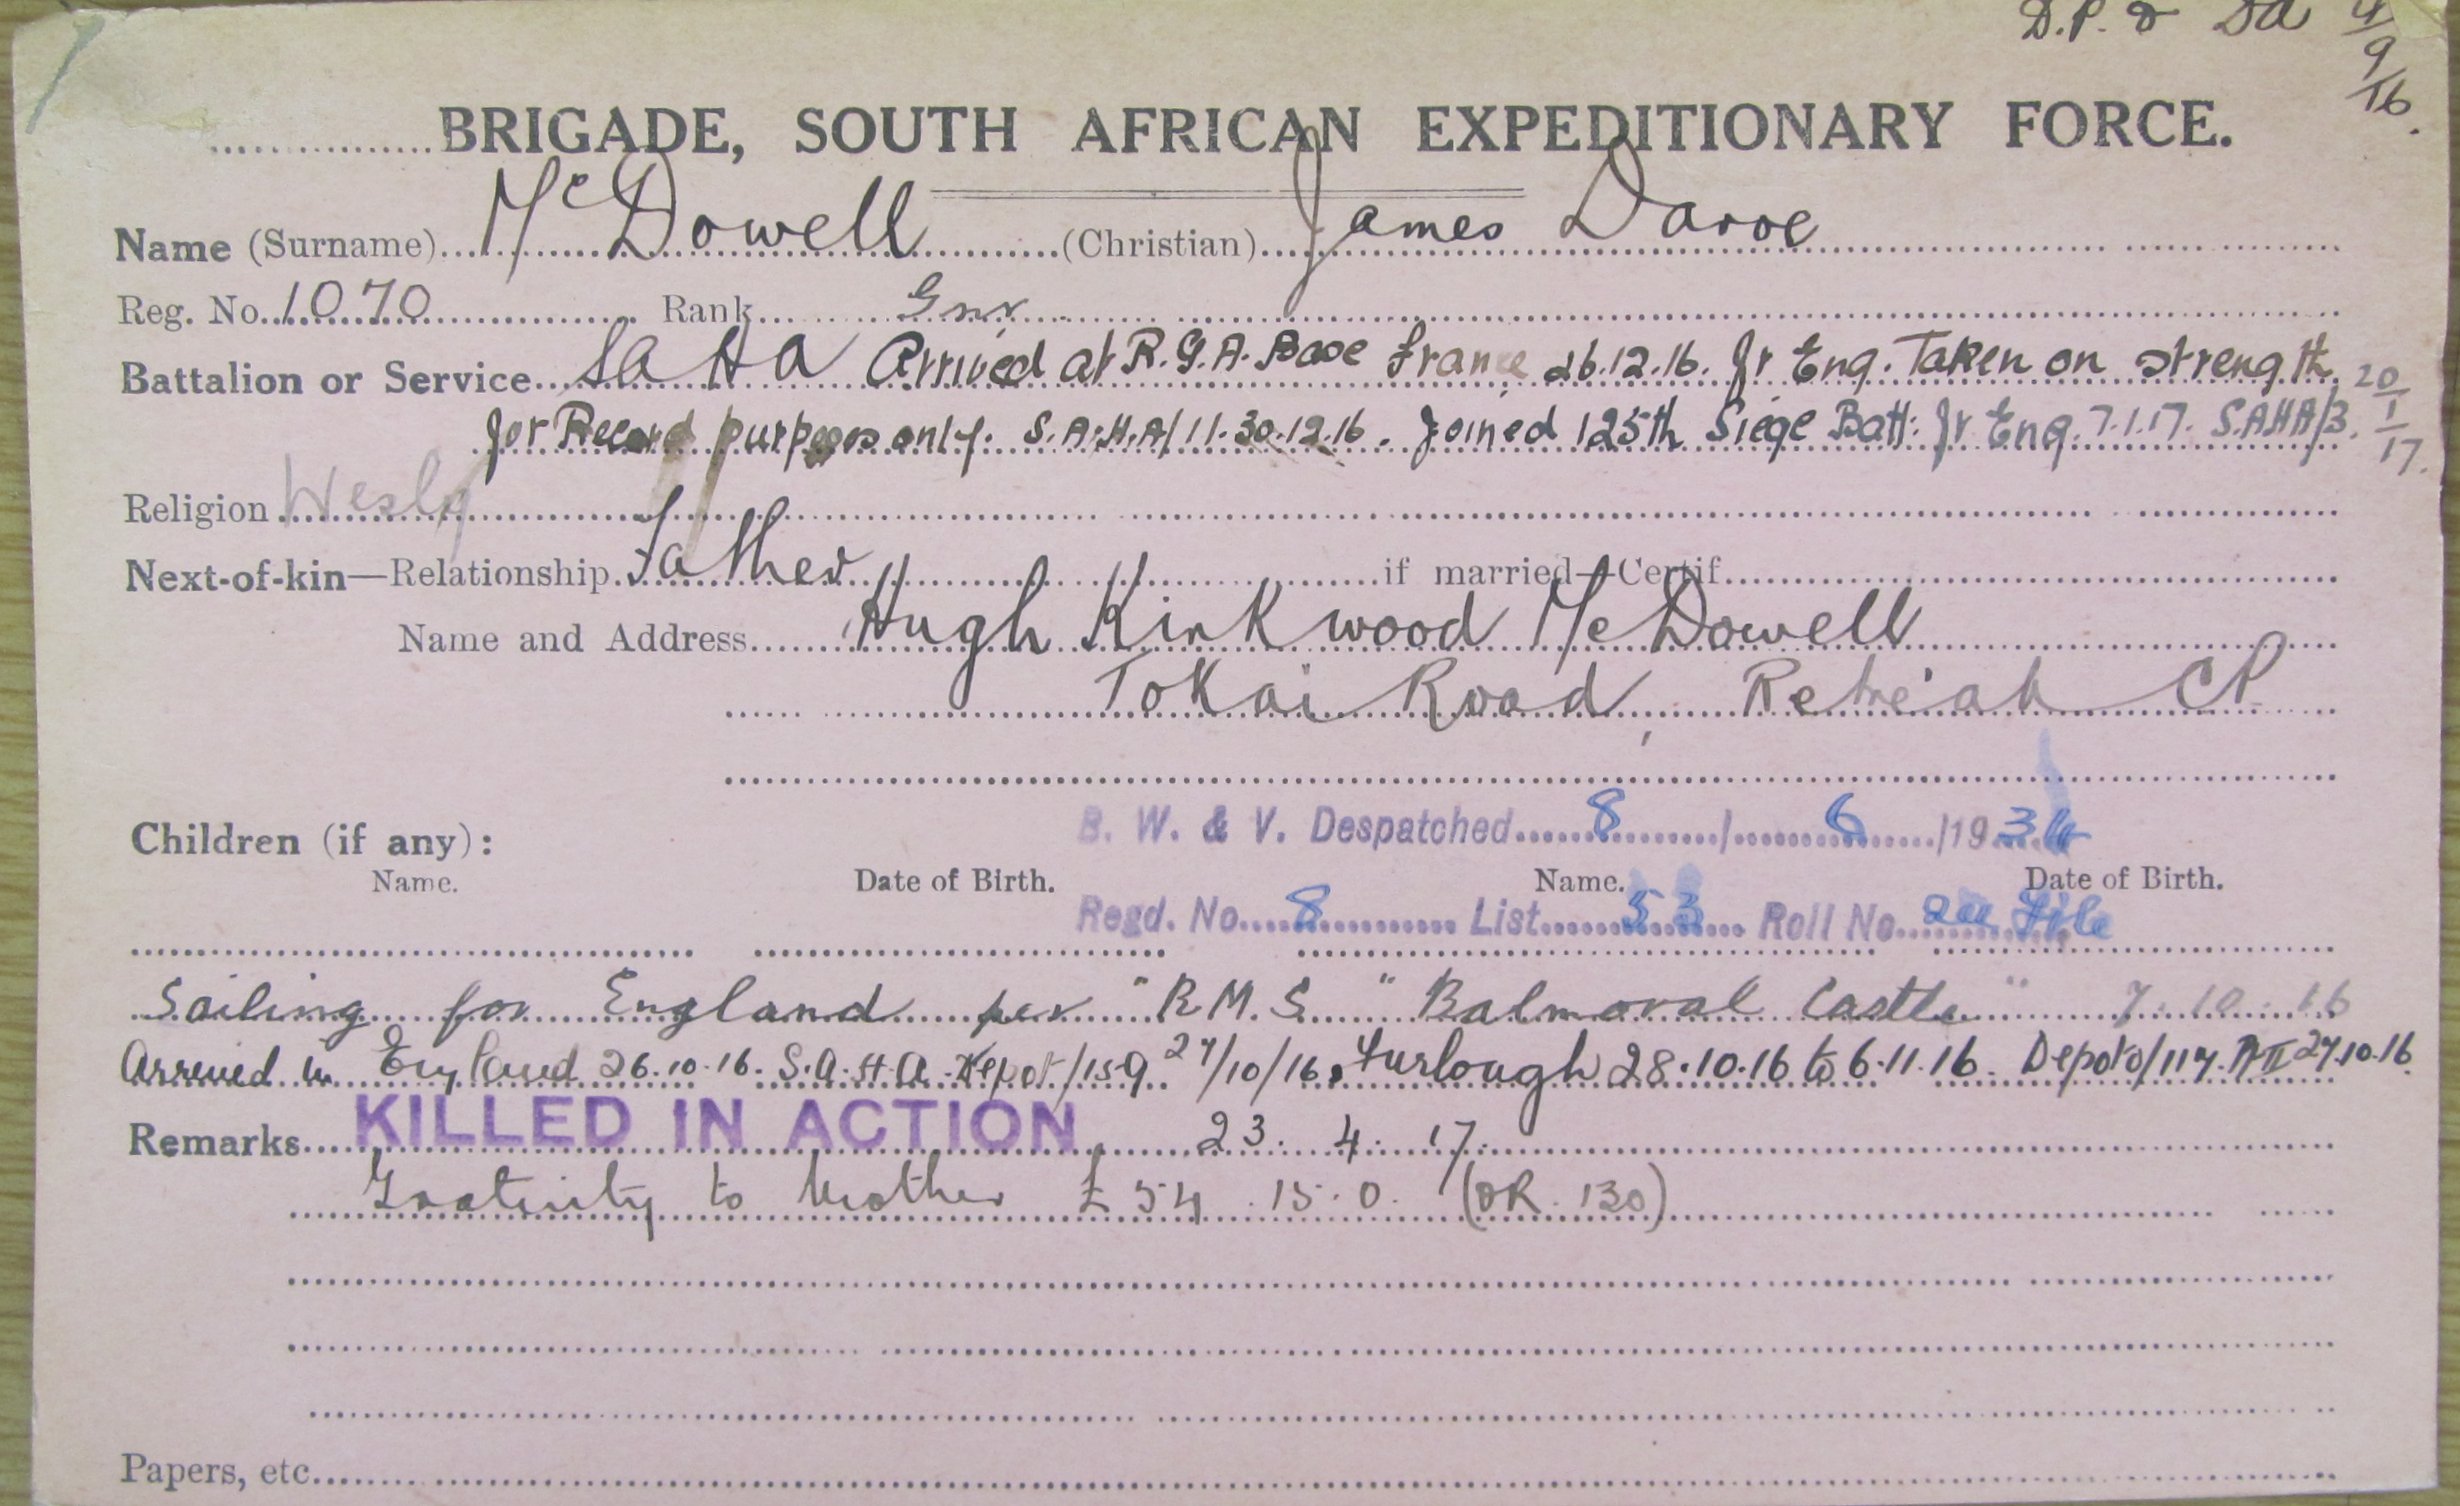 D.P. & Da 4/9/16.
BRIGADE, SOUTH AFRICAN EXPEDITIONARY FORCE.
Name (Surname) McDowell (Christian) James
Reg. No. 1070 Rank Gnr
Battalion or Service SAHA Arrived at R.G.A. Base France 26.12.16. fr Eng. Taken on strength
for Record purposes only. S.A.H.A/11. 30.12.16. Joined 125th Siege Batt: fr Eng. 7.1.17. S.AHA/3. 20/1/17.
Religion Wesly
Next-of-kin—Relationship Father if married—Certif
Name and Address Hugh Kirkwood McDowell
Tokai Road, Retreat CP
B. W. & V. Despatched 8/6/193
Children (if any):
Name. Date of Birth. Name. Date of Birth.
Regd. No. 8 List 53 Roll No. File
Sailing for England per "R.M.S" "Balmoral Castle" 7.10.16
Arrived in England 26.10.16. S.A.H.A. Depot/159 27/10/16. Furlough 28.10.16 to 6.11.16. Depot O/117. Pt II 27.10.16.
Remarks KILLED IN ACTION 23. 4. 17.
Gratuity to Mother £54.15.0. (DR.130)
Papers, etc.